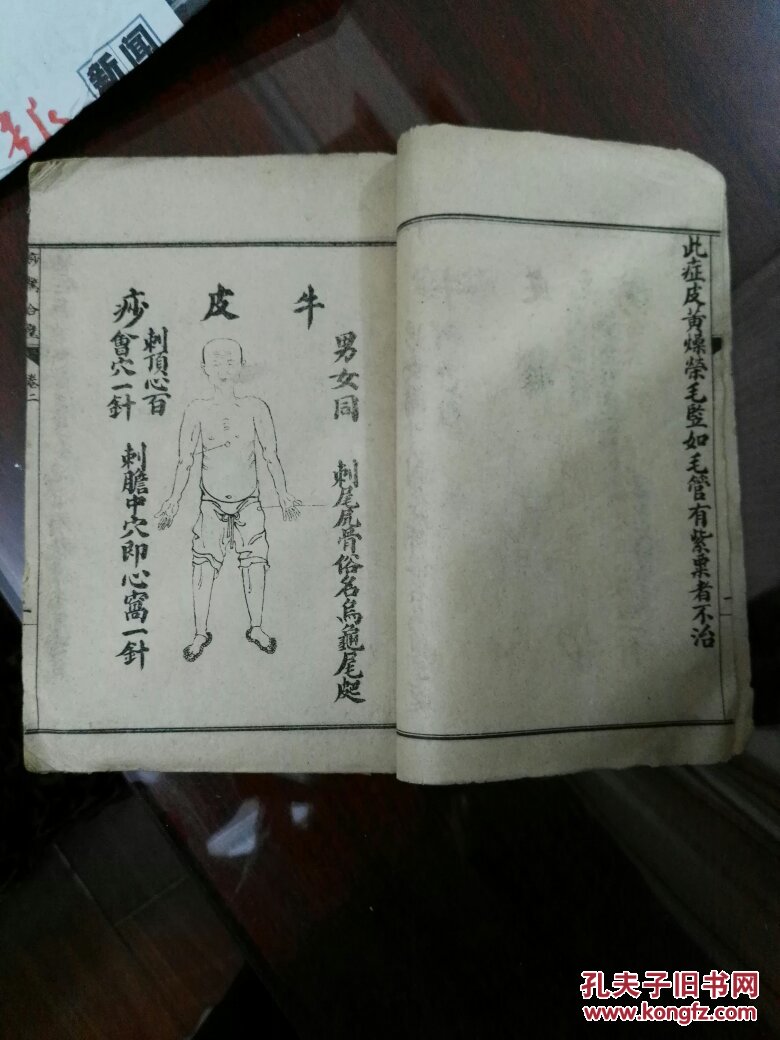 新闻
报
此症皮黄燥榮毛竪如毛管有紫粟者不治
牛皮痧
男女同
刺尾尻骨俗名烏龜尾𡱁
刺頂心百
會穴一針
刺膽中穴即心窩一針
卷二
孔夫子旧书网
www.kongfz.com